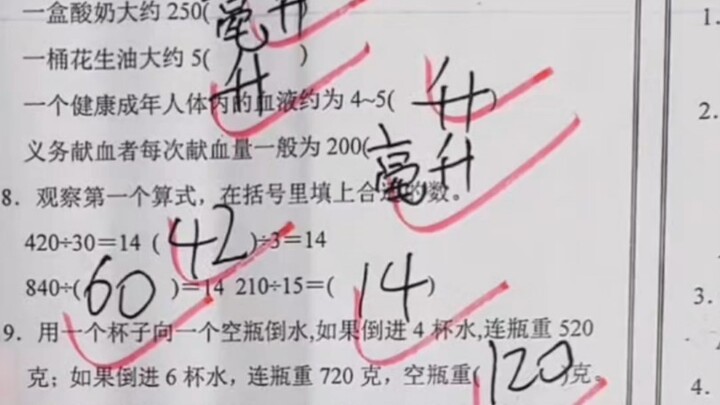 一盒酸奶大约 250(毫升
一桶花生油大约 5( 升 )
一个健康成年人体内的血液约为 4~5( 升 )
义务献血者每次献血量一般为 200(毫升
8. 观察第一个算式，在括号里填上合适的数。
420÷30=14 ( 42 )÷3=14
840÷( 60 )=14 210÷15=( 14 )
9. 用一个杯子向一个空瓶倒水,如果倒进 4 杯水,连瓶重 520
克；如果倒进 6 杯水，连瓶重 720 克，空瓶重( 120 )克。
1.
2.
3.
4.